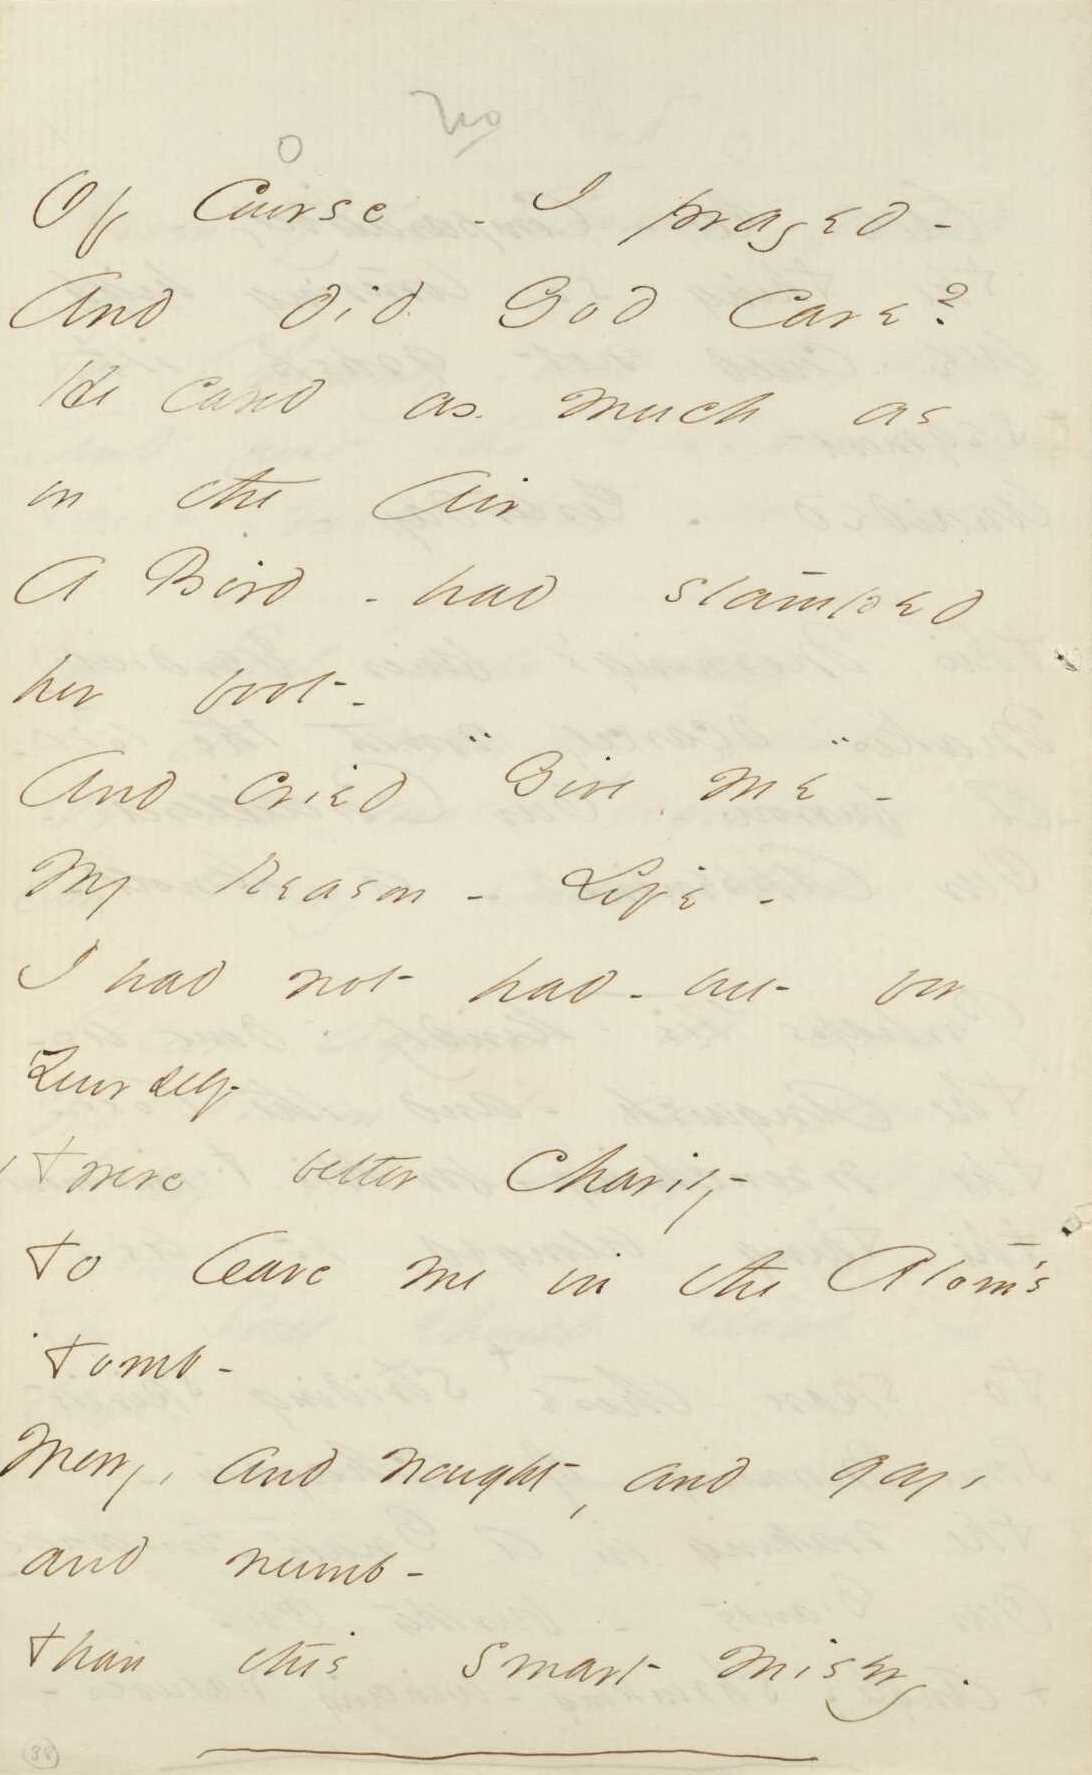 no
O
Of Course - I prayed -
And did God Care?
He cared as much as
on the Air
A Bird - had stamped
her foot -
And cried "Give Me" -
My Reason - Life -
I had not had - but for
Yourself -
'twere better Charity
To leave me in the Atom's
Tomb -
Merry, and nought, and gay,
and numb -
Than this smart Misery.
38